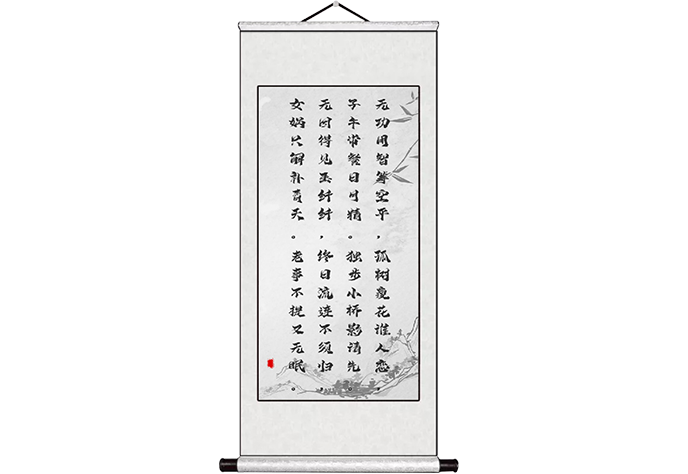 无功用智等空平，孤树瘦花谁人恋。
子午常餐日月精。独步小桥影请先。
无因得见玉纤纤，终日流连不须归。
女娲只解补青天。老事不提又无眠。